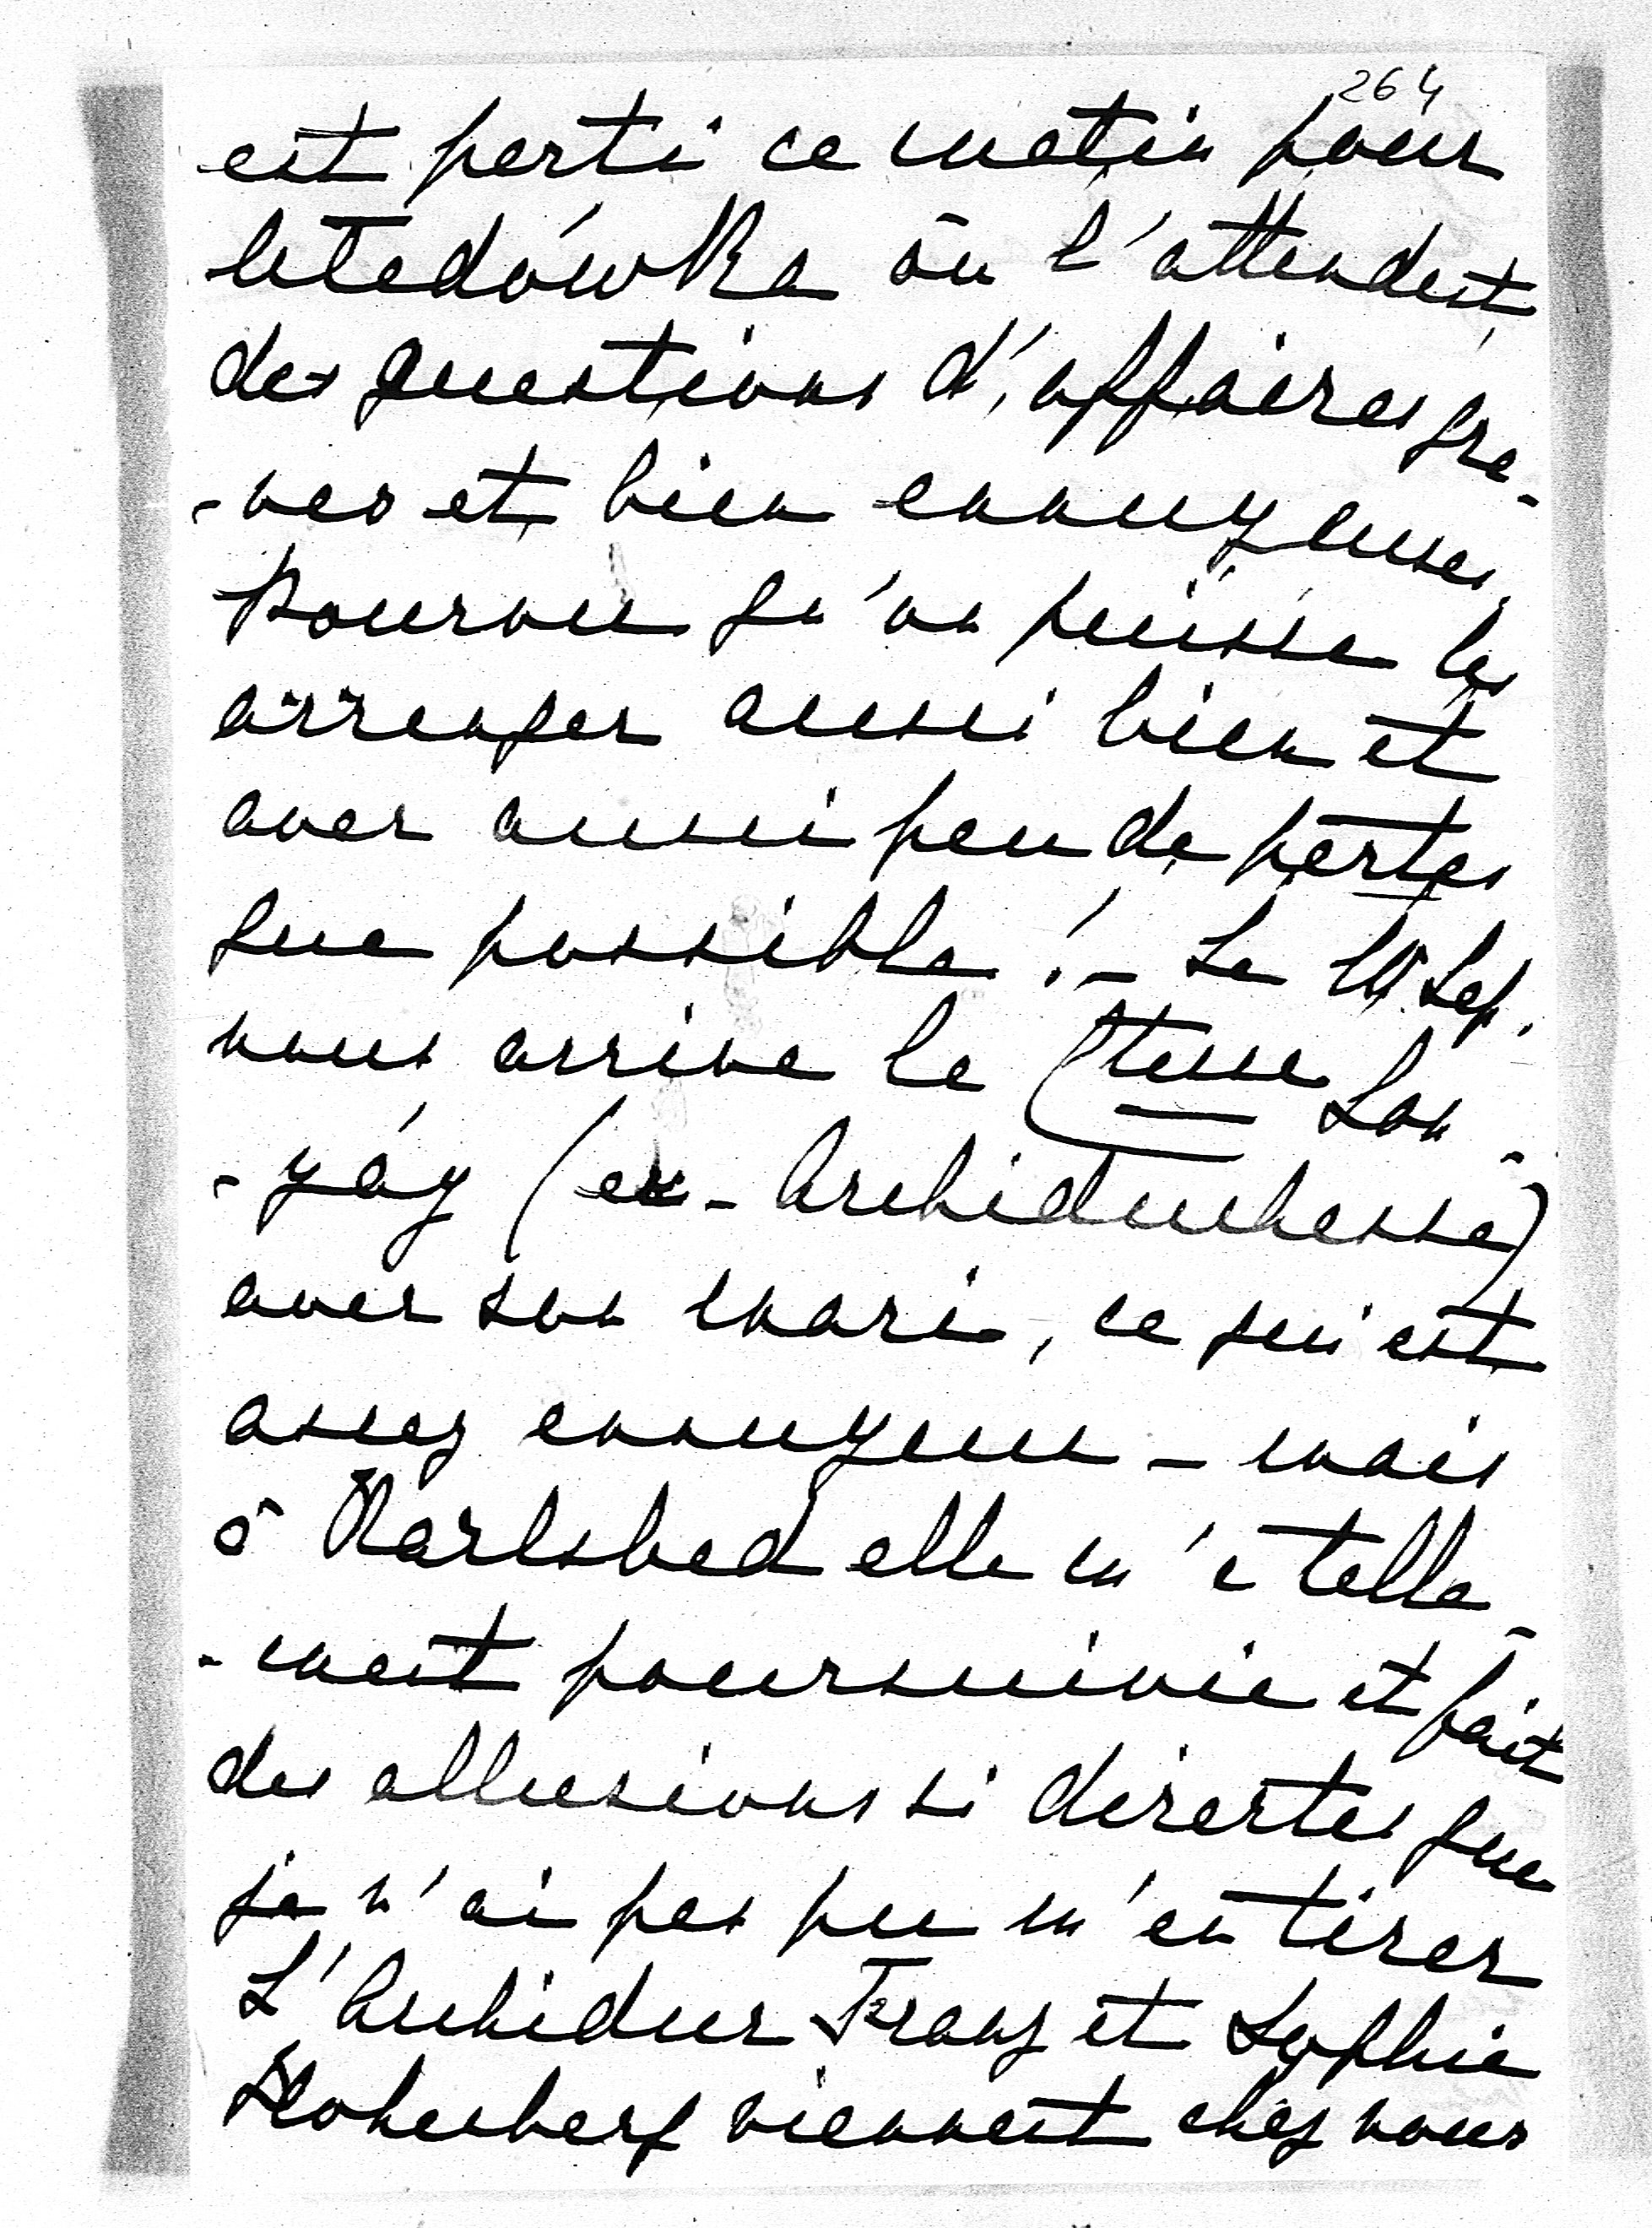 264
est parti ce matin pour
où l'attendent
des questions d'affaires gra-
-ves et bien ennuyeuses.
Pourvu qu'on puisse les
arranger aussi bien et
avec aussi peu de pertes
que possible ! – Le Sep.
nous arrive la Ctesse Lon-
-yáy (ex-Archiduchesse)
avec son mari, ce qui est
assez ennuyeux – mais
à Karlsbad elle m'a telle-
-ment poursuivie et fait
des allusions si directes que
je n'ai pas pu m'en tirer
L'Archiduc Franz et Sophie
Hohenberg viennent chez nous